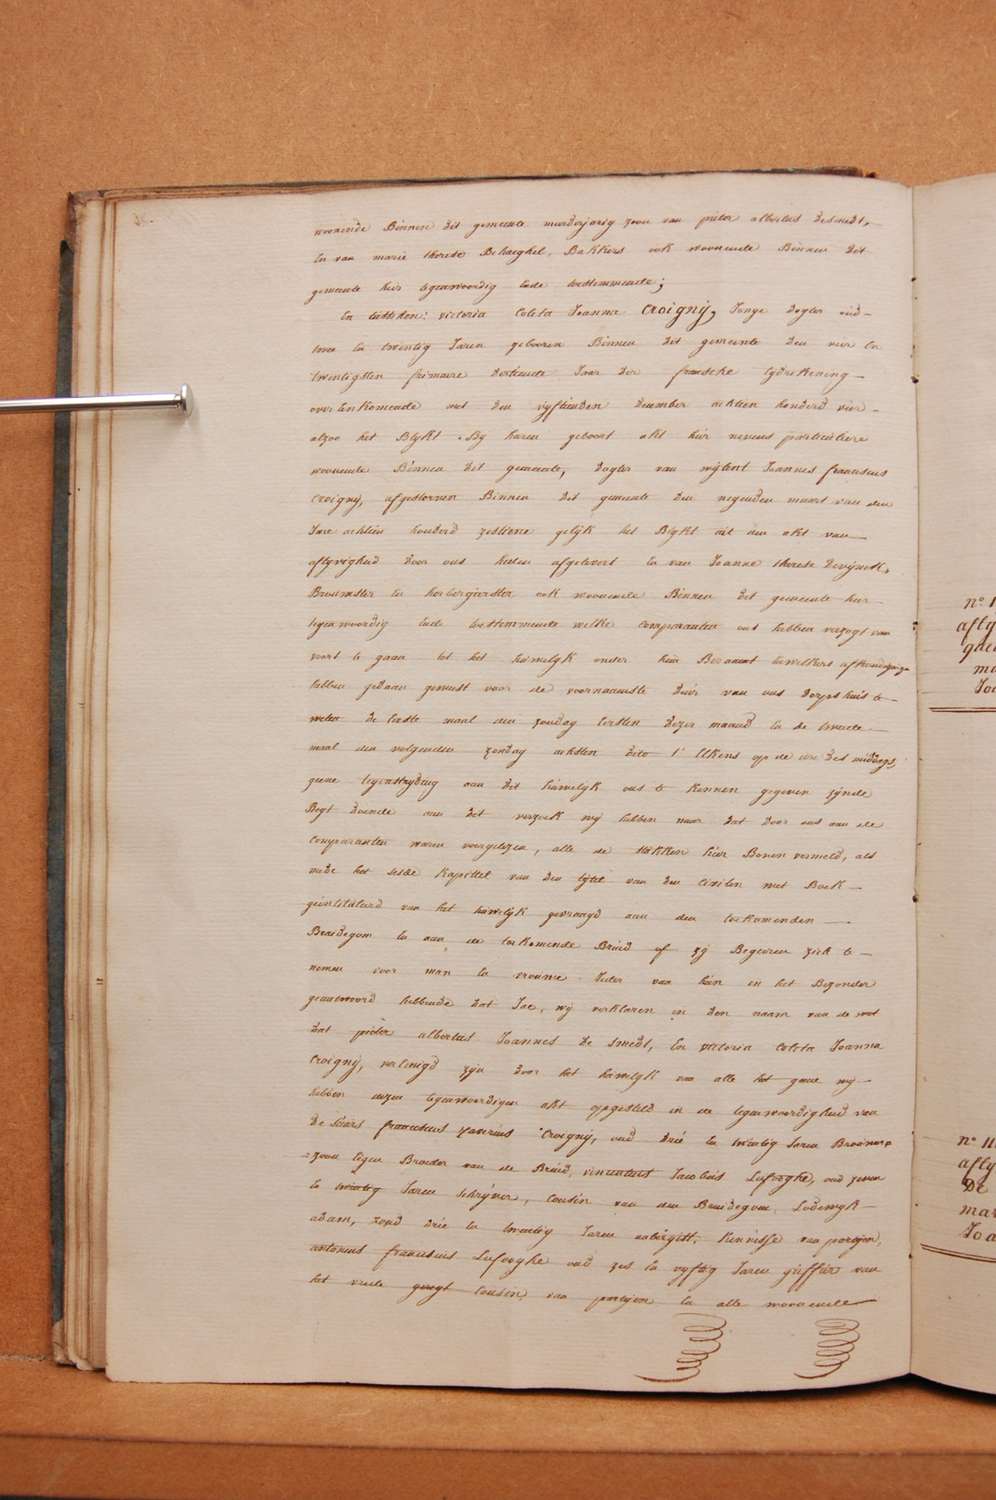 woonende Binnen dit gemeente meerderjarig zoon van pieter albertus desmedt,
En van marie therese Behaeghel, Bakkers ook woonende Binnen dit
gemeente hier tegenwoordig ende toestemmende;
En victoria Coleta Joanna Croignij, Jonge dogter oud
twee en twintig Jaren gebooren Binnen dit gemeente den vier En
twintigsten frimaire dertiende Jaar der fransche tijdrekening
over Een komende met den vijftienden december achtien honderd vier
alzoo het Blijkt By haren geboort akt hier nevens particuliere
woonende Binnen dit gemeente, dogter van wijlent Joannes franciscus
Croignij, afgestorven Binnen dit gemeente den negenden maart van den
Jare achtien honderd zestiene gelijk het Blijkt uit den akt van
aflyvigheid door ons heden afgelevert En van Joanna therese
Brouwster En herbergierster ook woonende Binnen dit gemeente hier
tegenwoordig ende toestemmende welke comparanten ons hebben verzogt van
voort te gaan tot het huwelijk onder hun Beraamt dewelkers afkondiginge
hebben gedaan geweest voor de voornaamste deur van ons dorpshuis te
weten de Eerste maal den zondag Eersten dezer maand En de tweede
maal den volgenden zondag achtsten dito Elkens op de ure des middags,
geene tegenstrijdig aan dit huwelijk ons te kennen gegeven zijnde
Regt doende aan dit verzoek wij hebben naar dat door ons aan de
comparanten waren voorgelezen, alle de stukken hier Boven vermeld, als
mede het sesde kapittel van den tijtel van den civilen wet Boek
geintituleerd van het huwelijk gevraagd aan den toekomenden
Bruidegom En aan de toekomende Bruid of zij Begeeren zich te
nemen voor man En vrouwe Ieder van hun in het Bezonder
geantwoord hebbende dat Jae, wij verklaren in den naam van de wet
dat pieter albertus Joannes De Smedt, En victoria Coleta Joanna
Croignij, vereenigd zijn door het huwelijk van alle het gene wij
hebben dezen tegenwoordigen akt opgesteld in de tegenwoordigheid van
De Sieurs franciscus xaverius Croignij, oud drie En twintig Jaren Brouwers
zoon Eigen Broeder van de Bruid, vincentius Jacobus Lefreghe, oud zeven
En twintig Jaren schrijver, Cousin van den Bruidegom, Lodewyk
adam, oud drie En twintig Jaren kennisse van partijen,
antonius franciscus Lefreghe oud zes En vyftig Jaren greffier van
het vrede geregt Cousin van partijen En alle woonende